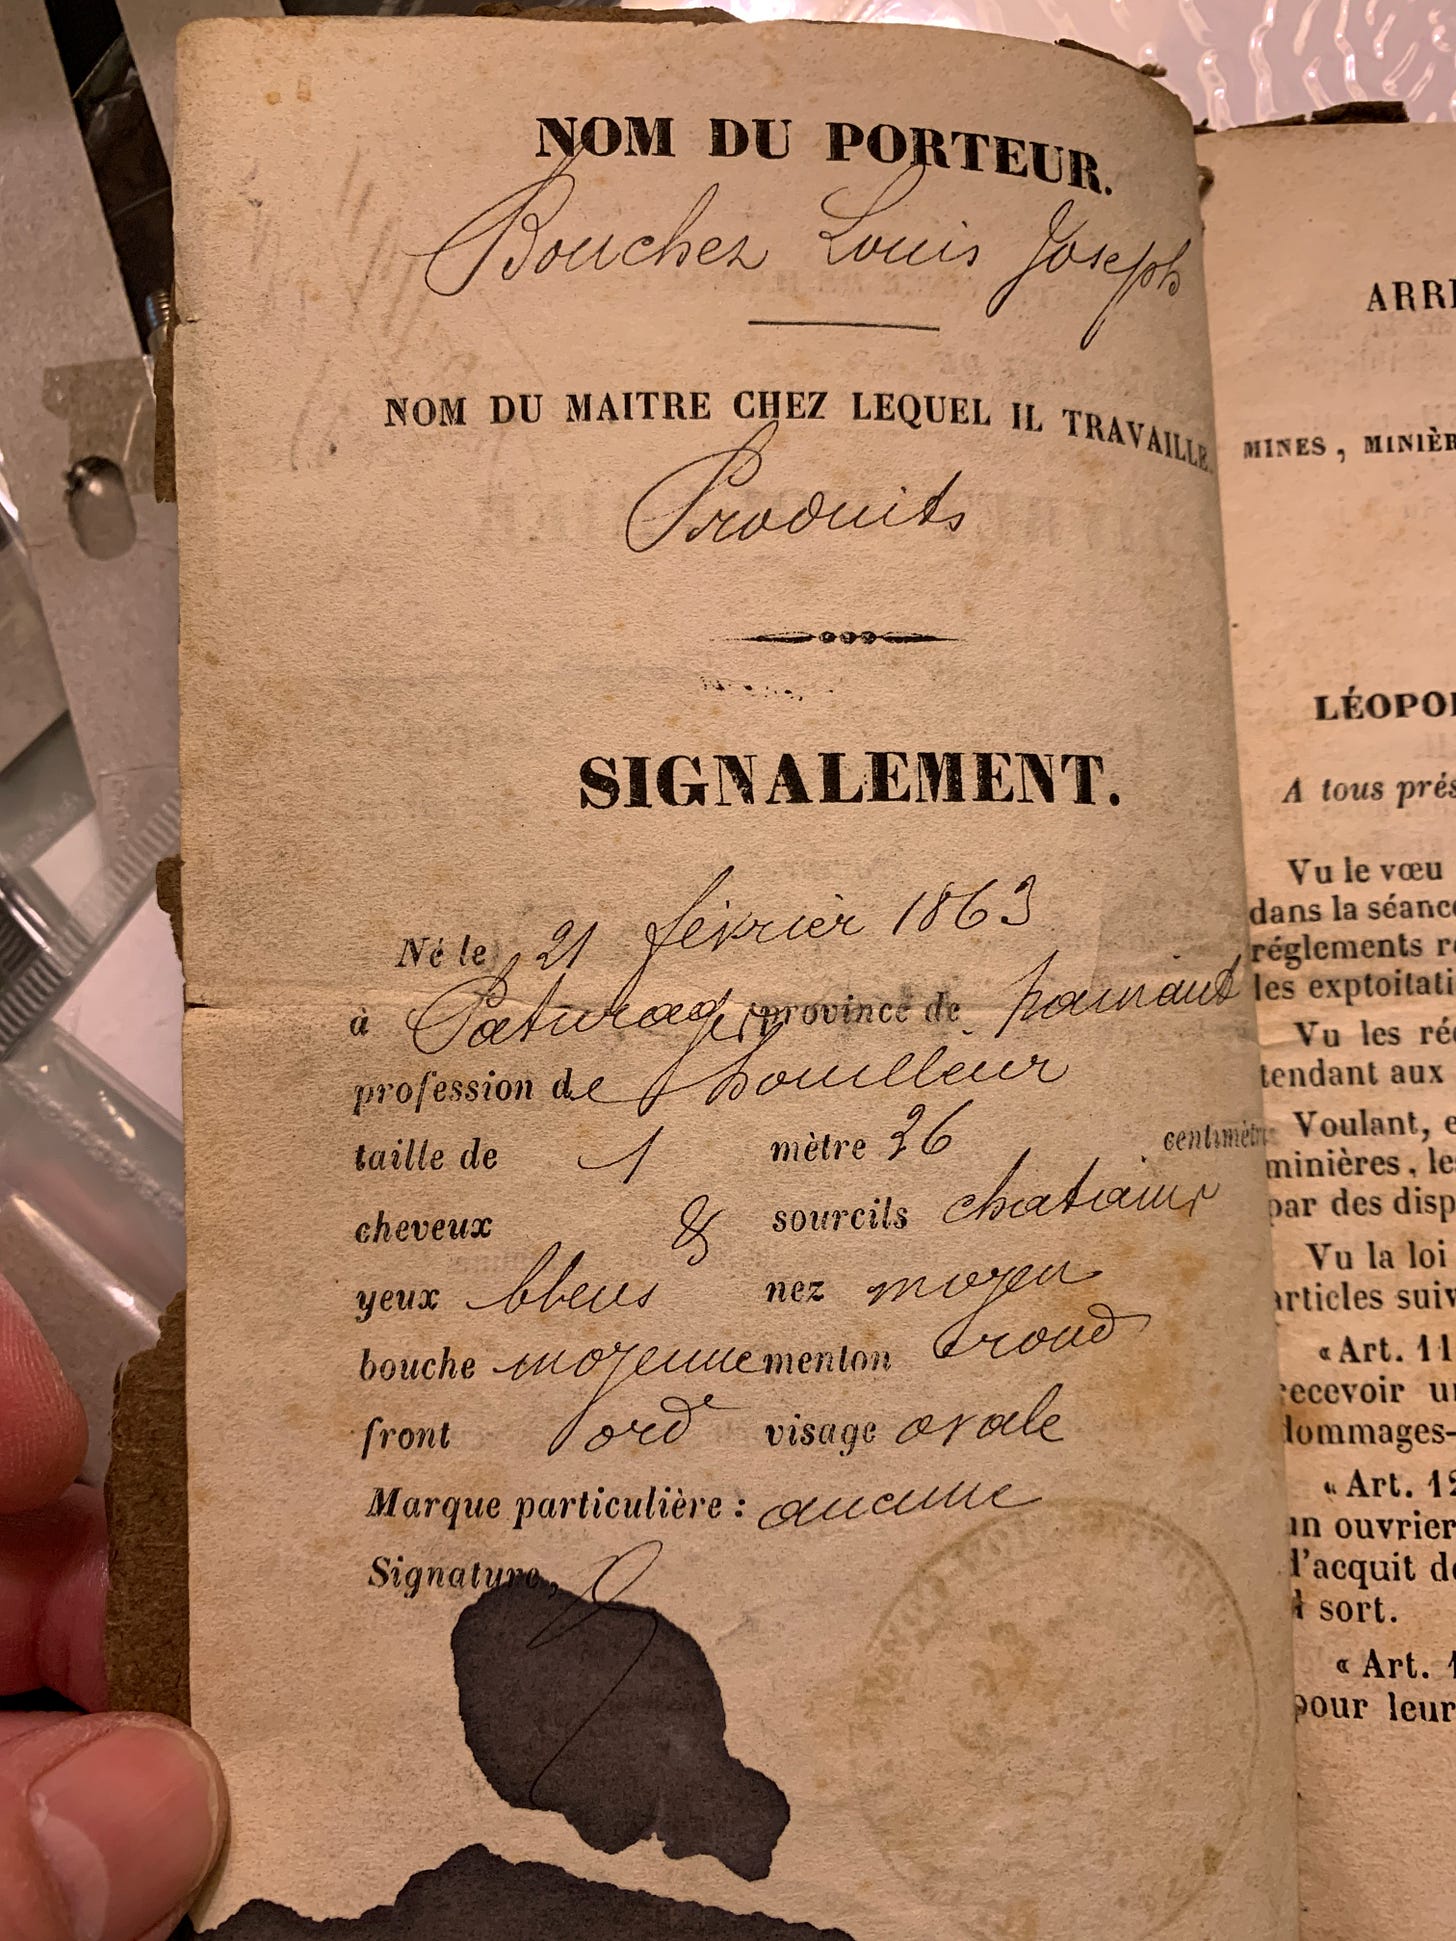 NOM DU PORTEUR.
Bouchez Louis Joseph
NOM DU MAITRE CHEZ LEQUEL IL TRAVAILLE.
Produits
SIGNALEMENT.
Né le 21 février 1863
à Paturages province de hainaut
profession de houilleur
taille de 1 mètre 26 centimètr
cheveux & sourcils chatains
yeux bleus nez moyen
bouche moyenne menton rond
front ord^e visage ovale
Marque particulière : aucune
Signature,
ARRE
MINES, MINIÈR
LÉOPOL
A tous prés
Vu le vœu
dans la séance
réglements re
les exptoitati
Vu les ré
tendant aux
Voulant, e
minières, le
par des disp
Vu la loi
articles suiv
« Art. 11
recevoir u
dommages-
« Art. 12
un ouvrier
l'acquit de
sort.
« Art. 1
pour leur